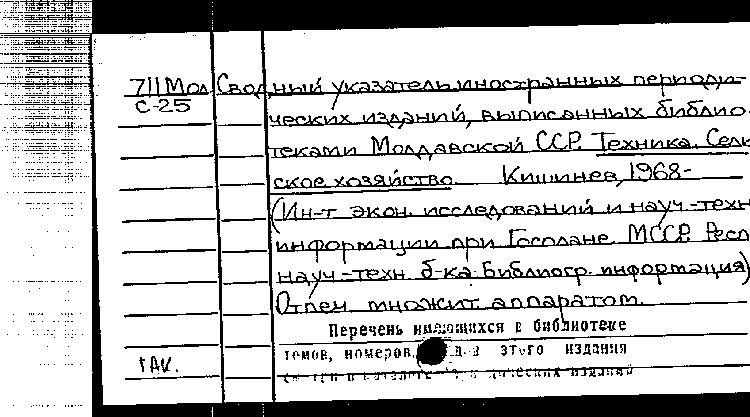 711Мол Сводный указатель иностранных периоди-
С-25
ческих изданий, выписанных библио
теками Молдавской ССР. Техника. Сельс
ское хозяйство Кишинев, 1968-
(Ин-т экон. исследований и науч-техн
информации при Госплане МССР. Респ
науч-техн б-ка. Библиогр. информация)
Отпеч. множит аппаратом.
Перечень имеющихся в библиотеке
томов, номеров, этого издания
ГАК.